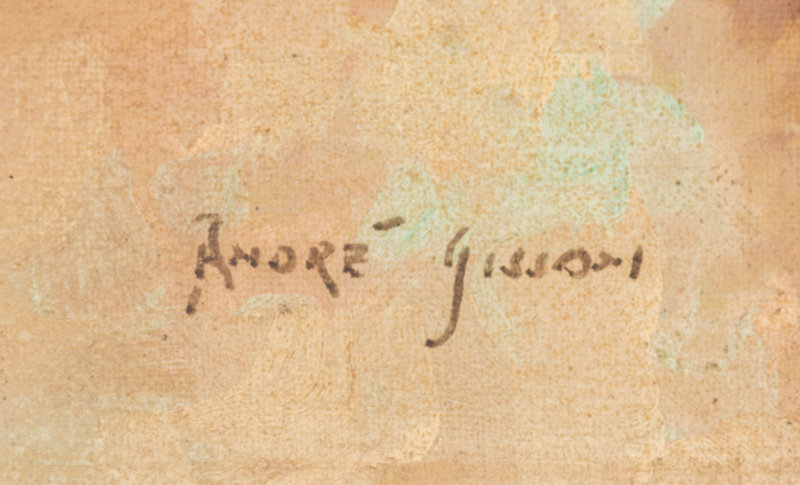 ANDRÉ Gisson